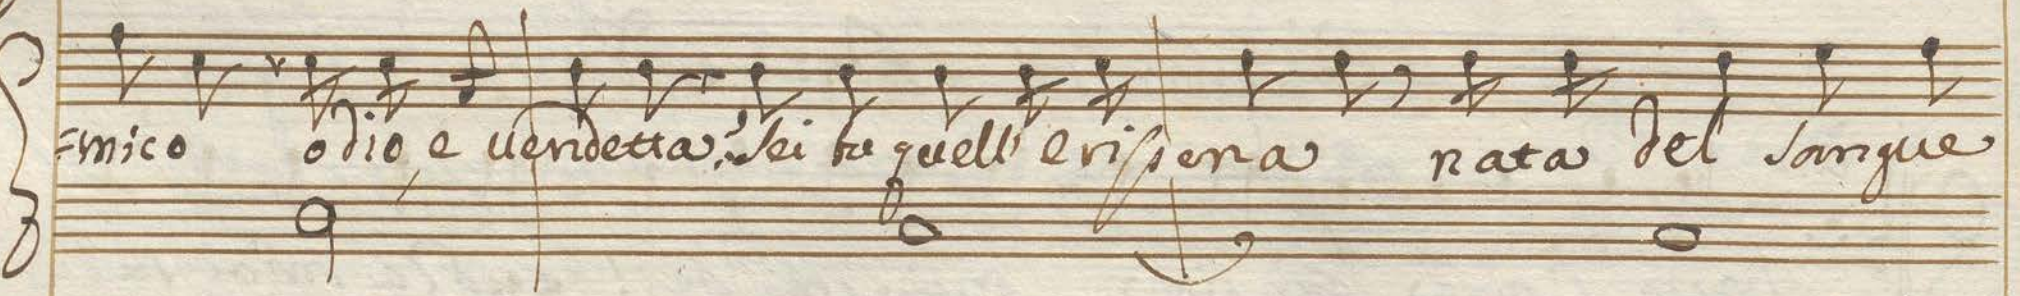 =mico odio e vendetta? Sei tu quell' erissena nata del sangue